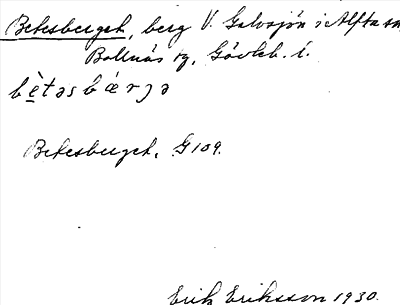 Betesberget, berg V. Galvsjön i Alfta sn
Bollnäs tg, Gävleb. l.
bètasbærja
Betesberget. G 109.
Erik Eriksson 1930.